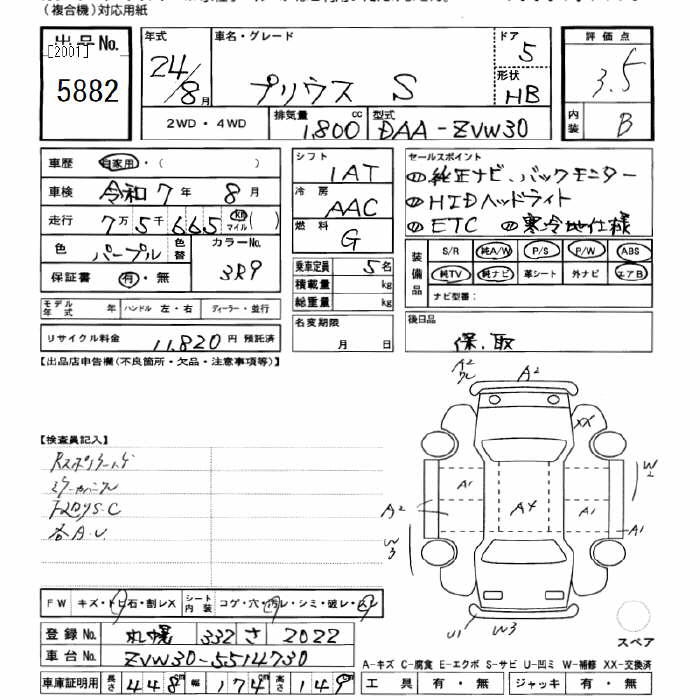 (複合機)対応用紙
出品No.
[2001]
5882
年式 24/8月
車名・グレード プリウス S
ドア 5
形状 HB
評価点 3.5
内装 B
2WD・4WD
排気量 1,800 cc
型式 DAA-ZVW30
車歴 自家用・( )
車検 令和7年 8月
走行 7万5千665 km マイル( )
色 パープル
色替
カラーNo. 3R9
保証書 有・無
モデル年式 年
ハンドル 左・右
ディーラー・並行
リサイクル料金 11,820 円 預託済
シフト IAT
冷房 AAC
燃料 G
乗車定員 5名
積載量 kg
総重量 kg
名変期限 月 日
セールスポイント
純正ナビ、バックモニター
HIDヘッドライト
ETC 寒冷地仕様
装備品 S/R 純A/W P/S P/W ABS
純TV 純ナビ 革シート 外ナビ エアB
ナビ型番:
後日品
保、取
【出品店申告欄(不良箇所・欠品・注意事項等)】
A2
A2
XX
【検査員記入】
A1
A4
A1
W2
A2
A1
W3
各A.U
FW キズ・トビ石・割レX
シート内装 コゲ・穴・汚レ・シミ・破レ・スレ
U1 W3
スペア
登録No. 札幌 332 さ 2022
車台No. ZVW30-5514730
車庫証明用 長さ 448 幅 174 高さ 149
A-キズ C-腐食 E-エクボ S-サビ U-凹ミ W-補修 XX-交換済
工具 有・無 ジャッキ 有・無